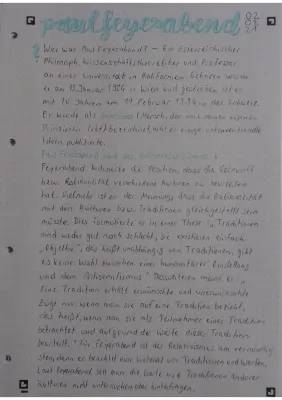 paul feyerabend 02 02 21
Wer war Paul Feyerabend? – Ein österreichischer
Philosoph, Wissenschaftstheoretiker und Professor
an einer Universität in Kalifornien. Geboren wurde
er am 13. Januar 1924 in Wien und gestorben ist er
mit 70 Jahren am 11. Februar 1994 in der Schweiz.
Er wurde als (Mensch, der nach seinen eigenen
Prinzipien lebt) bezeichnet, weil er einige unkonventionelle
Ideen publizierte.
Paul Feyerabend und der
Feyerabend kritisierte die Position, dass die Vernunft
bzw. Rationalität verschiedene Kulturen zu beurteilen
hat. Vielmehr ist er der Meinung, dass die Rationalität
mit den Kulturen bzw. Traditionen gleichgestellt sein
müsste. Dies formulierte er in einer These: "Traditionen
sind weder gut noch schlecht, sie existieren einfach.
„Objektiv", das heißt unabhängig von Traditionen, gibt
es keine Wahl zwischen einer humanitären Einstellung
und dem Antisemitismus." Desweiteren meint er:
„Eine Tradition erhält erwünschte und unerwünschte
Züge nur, wenn man sie auf eine Tradition bezieht,
das heißt, wenn man sie als Teilnehmer einer Tradition
betrachtet und aufgrund der Werte dieser Tradition
beurteilt." Für Feyerabend ist der Relativismus am vernünftig-
sten, denn er beachtet eine Vielzahl von Traditionen und Werten.
Laut Feyerabend soll man die Werte und Traditionen anderer
Kulturen nicht unterdrücken oder hinterfragen.